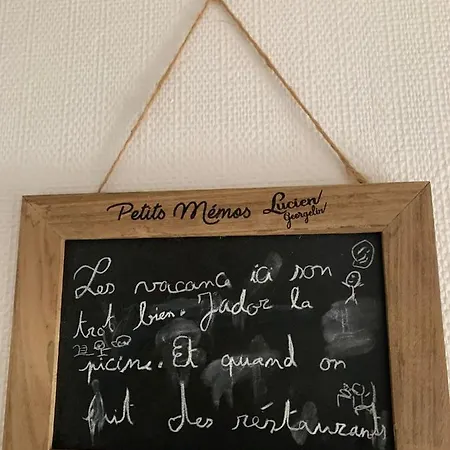 Petits Mémos Lucien Georgelin
Les vacana ici son
trot bien. J'ador la
picine. Et quand on
fuit des réstaurants